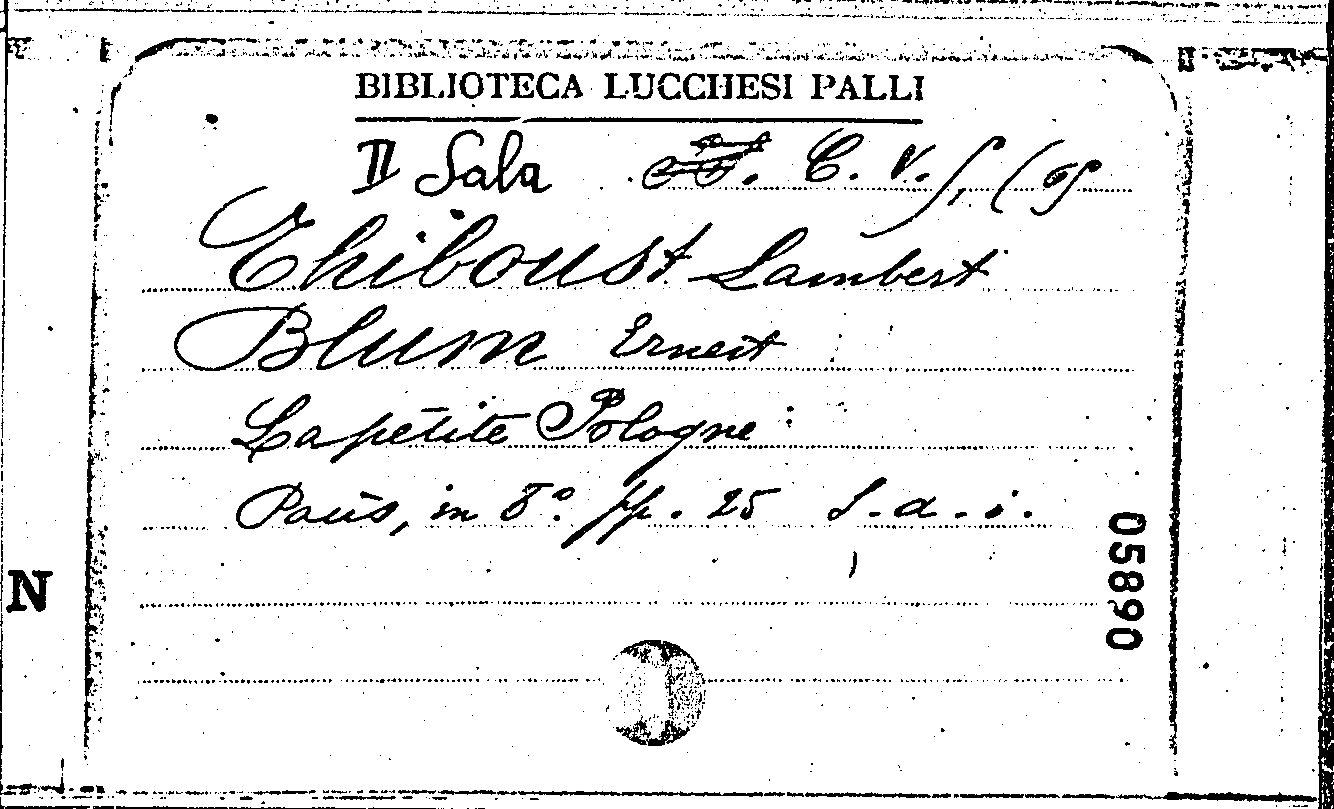 BIBLIOTECA LUCCHESI PALLI
II Sala C. V.
Thiboust Lambert
Blum Ernest
La petite Pologne:
Paris, in 8º. pp. 25 S. a. i.
05890
N